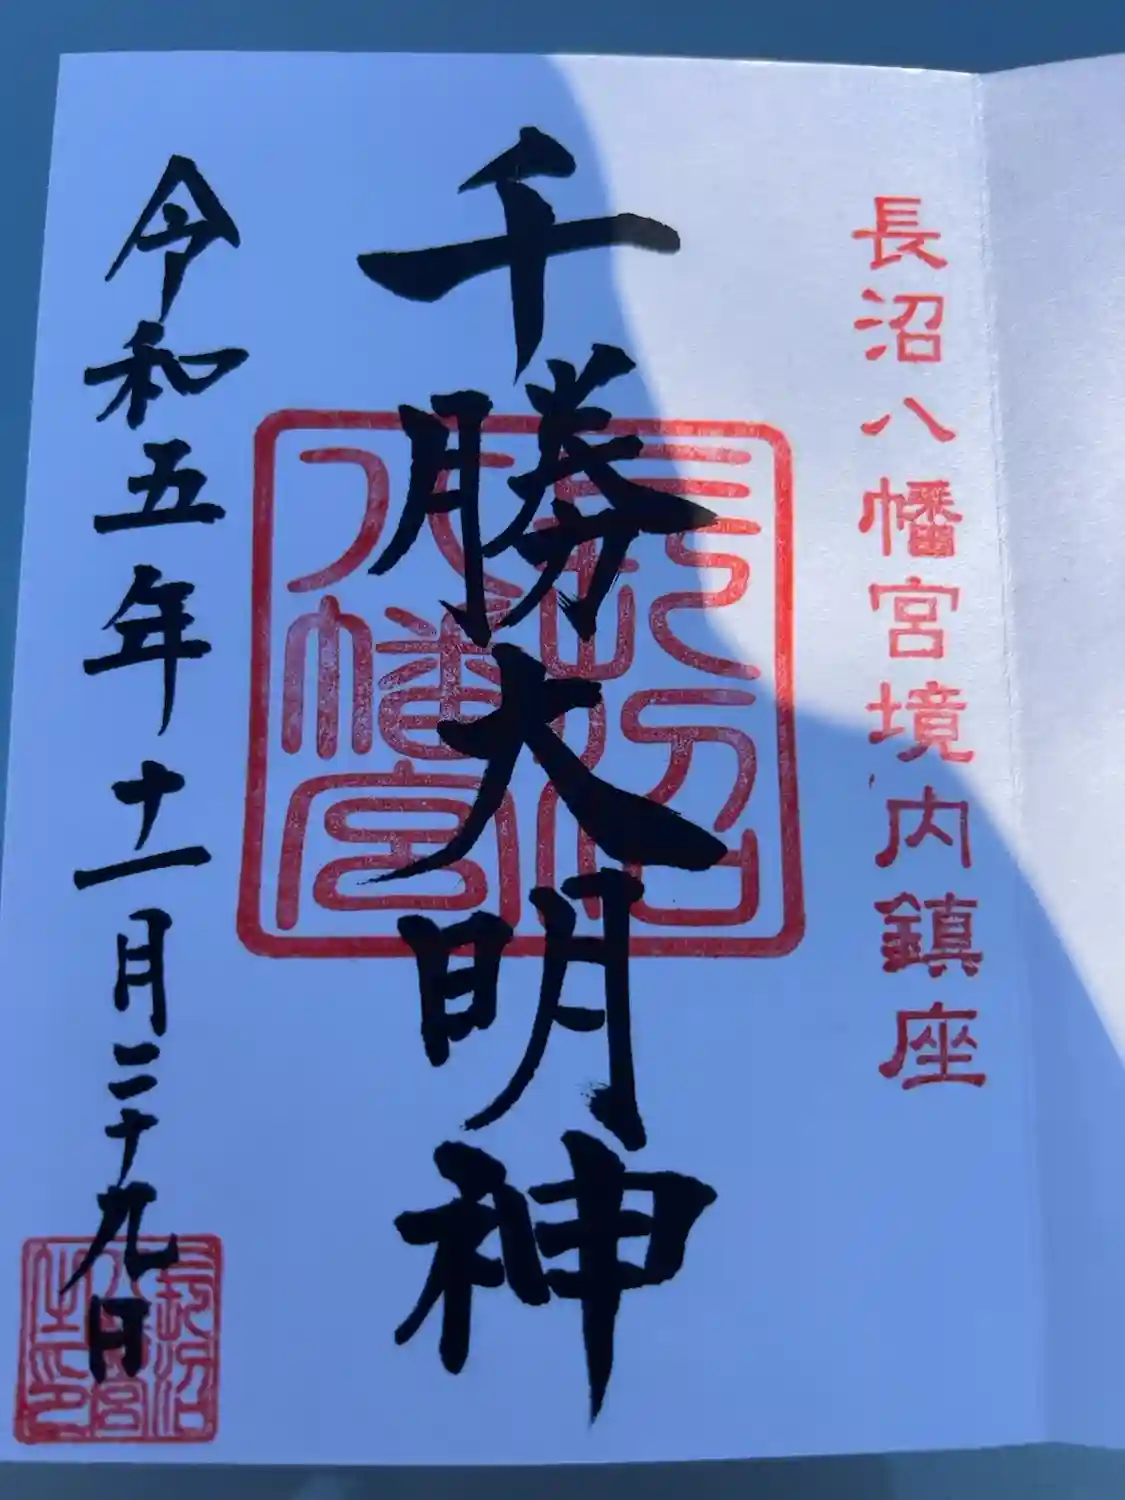 長沼八幡宮境内鎮座
千勝大明神
長沼
八幡宮
令和五年十一月二十九日
長沼
八幡宮
之印